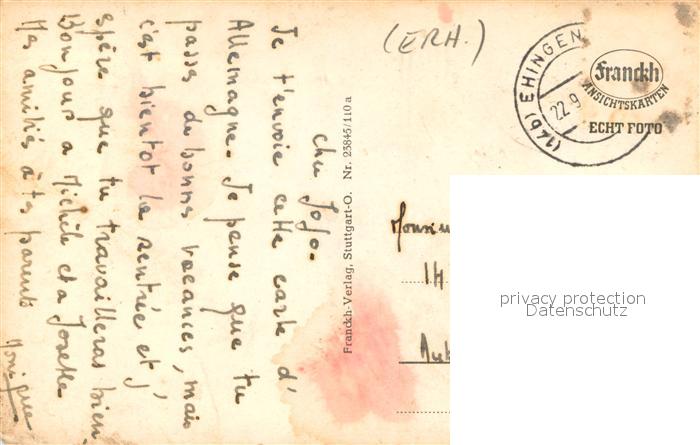 cher Jojo.
Je t'envoie cette carte d'
Allemagne. Je pense que tu
passes de bonnes vacances, mais
c'est bientot la rentrée et j'
espère que tu travailleras bien
Bonjour a Michèle et a Josette
Mes amitiés à tes parents
Monique
Franckh-Verlag, Stuttgart-O. Nr. 23845/110a
(ERH.)
(14b) EHINGEN
22.9
Franckh
ANSICHTSKARTEN
ECHT FOTO
14
privacy protection
Datenschutz